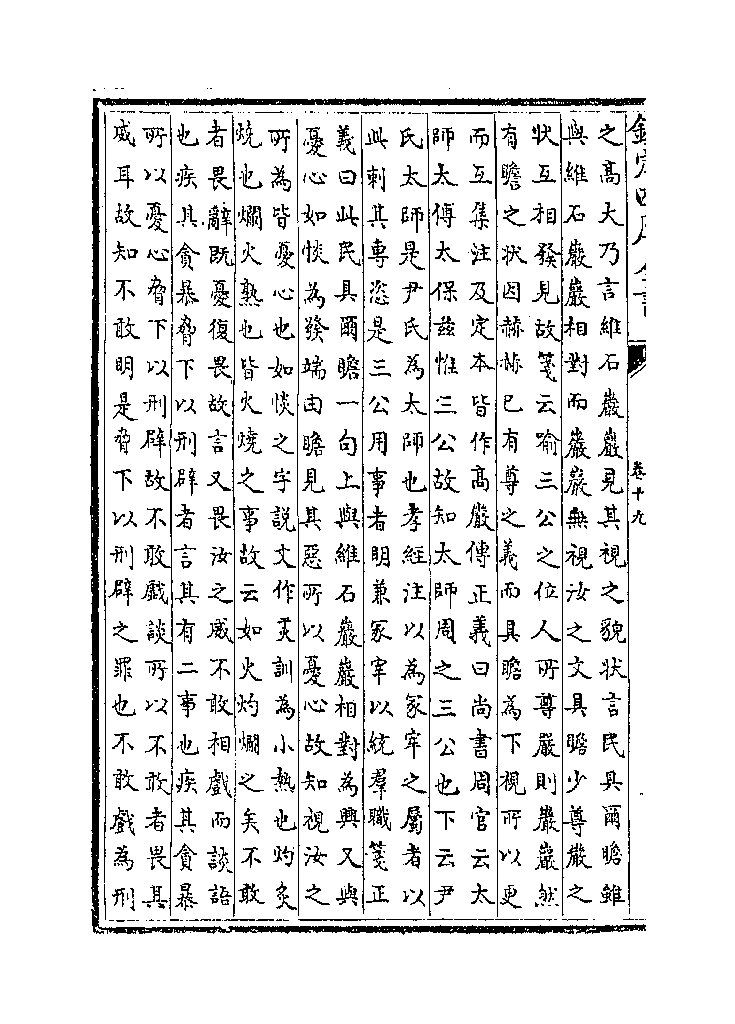 欽定四庫全書
卷十九
之髙大乃言維石巖巖見其視之貌狀言民具爾瞻雖
與維石巖巖相對而巖巖無視汝之文具瞻少尊嚴之
狀互相發見故箋云喻三公之位人所尊嚴則巖巖然
有瞻之狀因赫赫已有尊之義而具瞻為下視所以更
而互集注及定本皆作髙嚴傳正義曰尚書周官云太
師太傅太保兹惟三公故知太師周之三公也下云尹
氏太師是尹氏為太師也孝經注以為冢宰之屬者以
此刺其專恣是三公用事者明兼冢宰以統羣職箋正
義曰此民具爾瞻一句上與維石巖巖相對為興又與
憂心如惔為發端由瞻見其惡所以憂心故知視汝之
所為皆憂心也如惔之字說文作𤆎訓為小熱也灼炙
燒也爓火熟也皆火燒之事故云如火灼爓之矣不敢
者畏辭既憂復畏故言又畏汝之威不敢相戲而談語
也疾其貪暴脅下以刑辟者言其有二事也疾其貪暴
所以憂心脅下以刑辟故不敢戲談所以不敢者畏其
威耳故知不敢明是脅下以刑辟之罪也不敢戲為刑